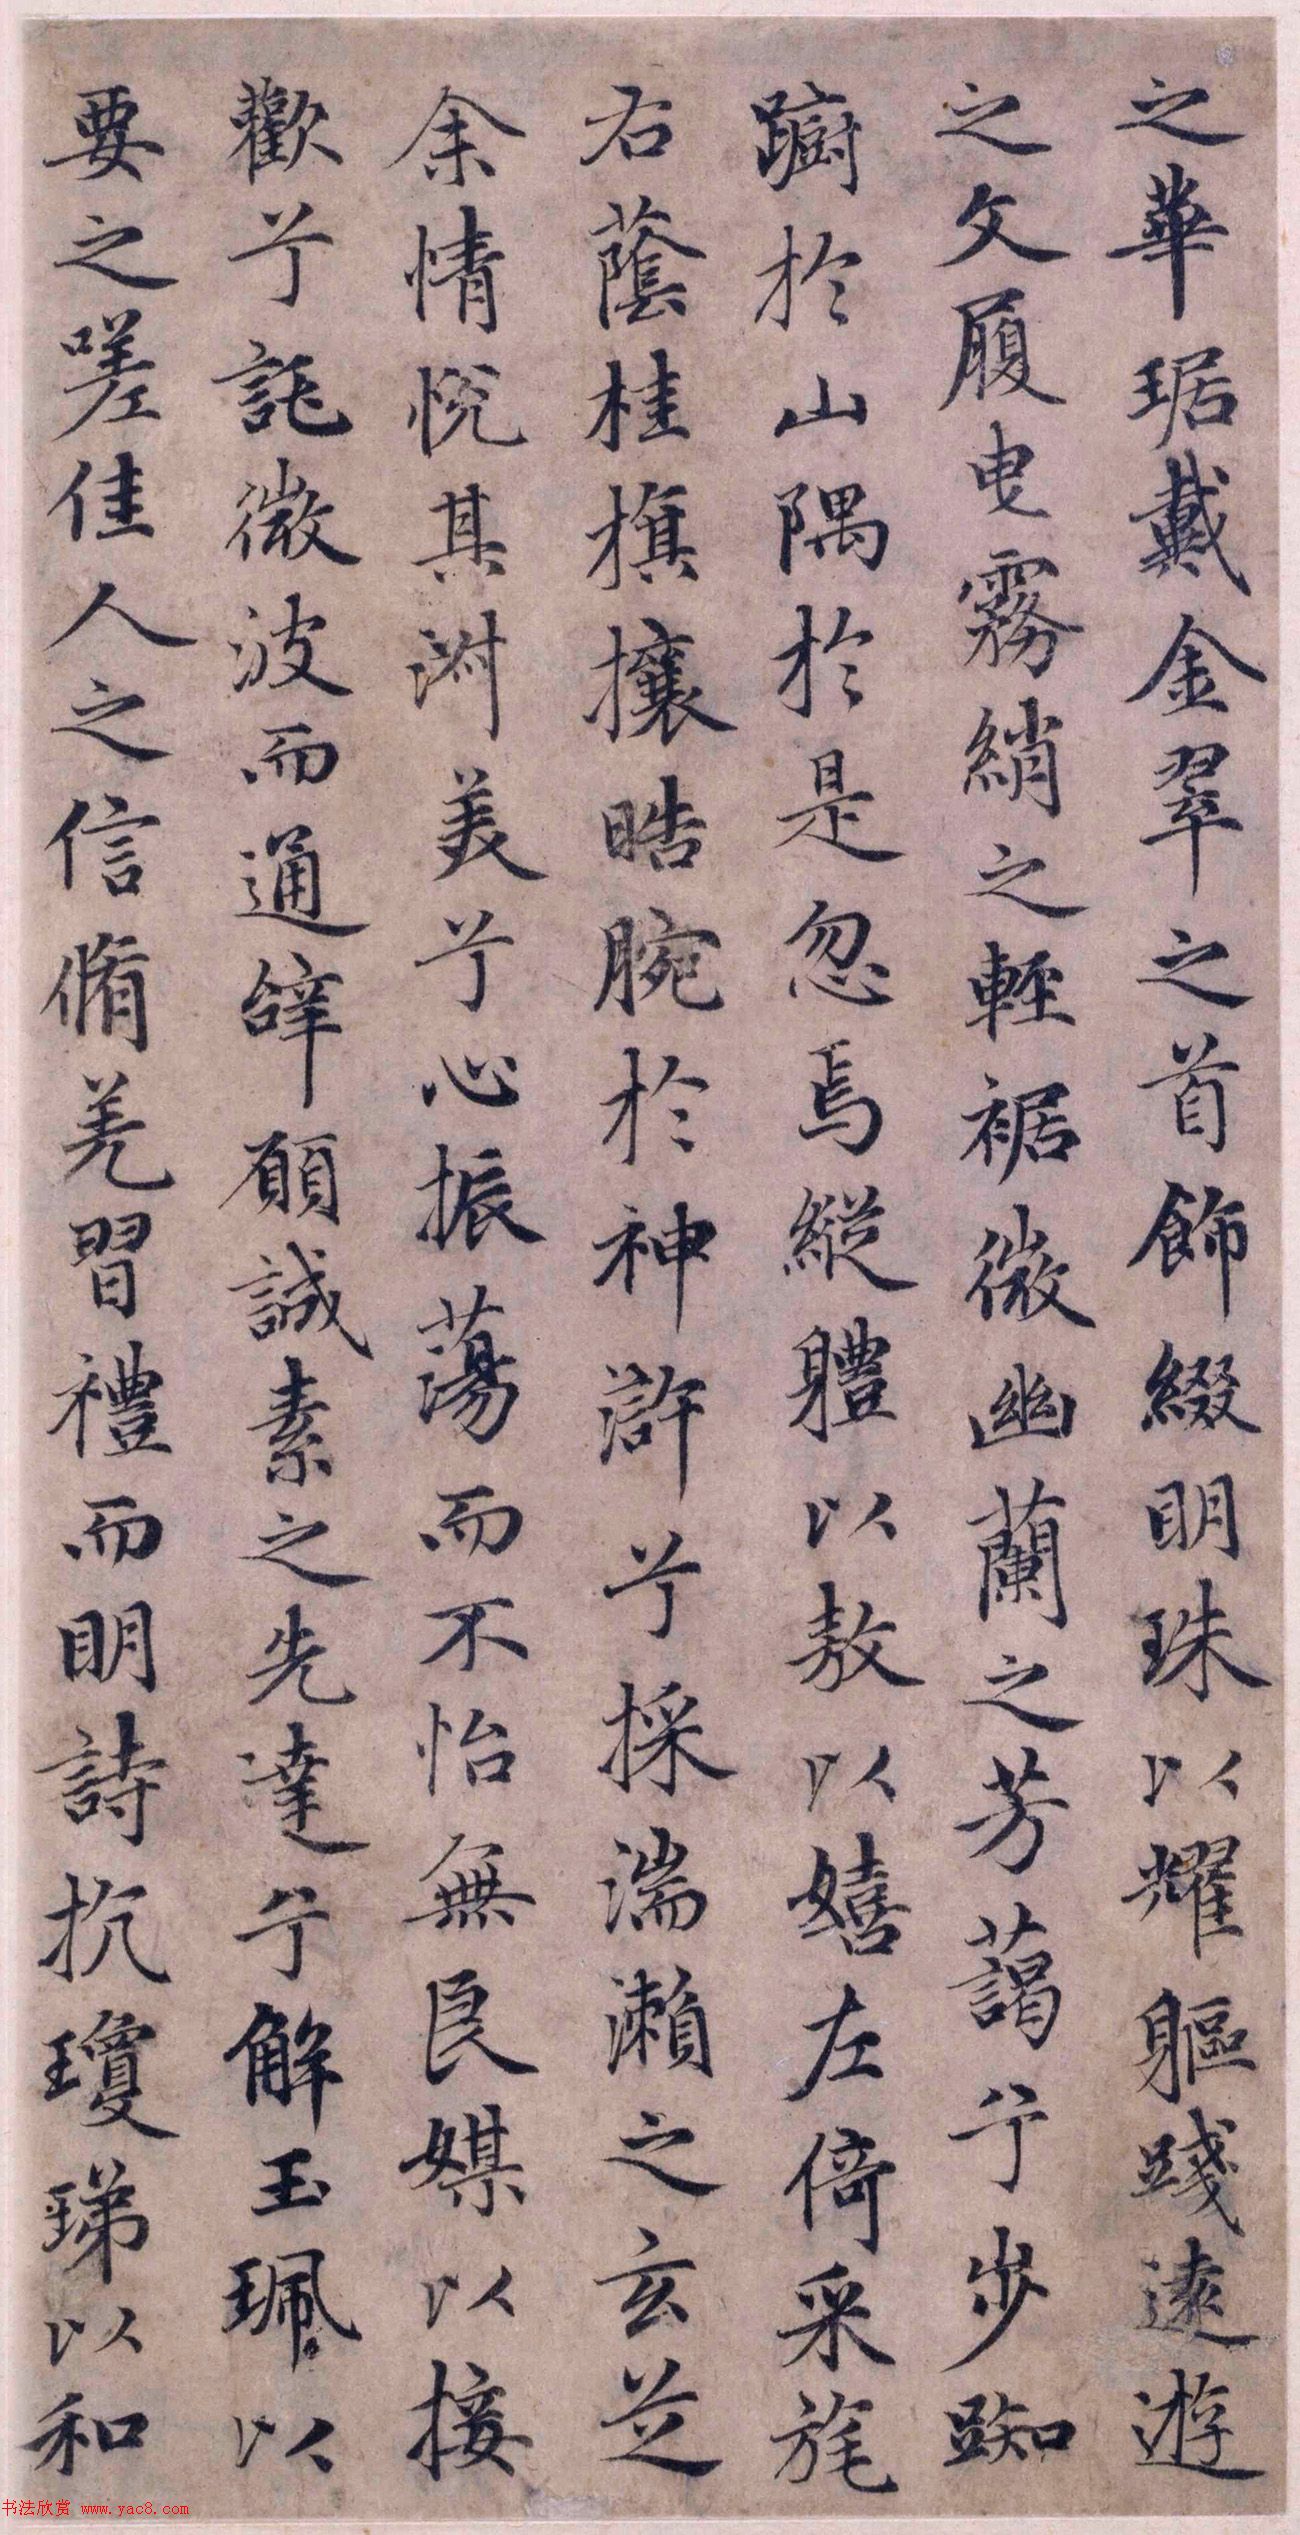 之華琚戴金翠之首飾綴明珠以耀軀踐遠遊
之文履曳霧綃之輕裾微幽蘭之芳藹兮步踟
躕於山隅於是忽焉縱軆以敖以嬉左倚采旄
右蔭桂旗攘晧腕於神滸兮採湍瀨之玄芝
余情悅其淑美兮心振蕩而不怡無良媒以接
歡兮託微波而通辝願誠素之先達兮解玉珮以
要之嗟佳人之信脩羌習禮而明詩抗瓊珶以和
书法欣赏 www.yac8.com